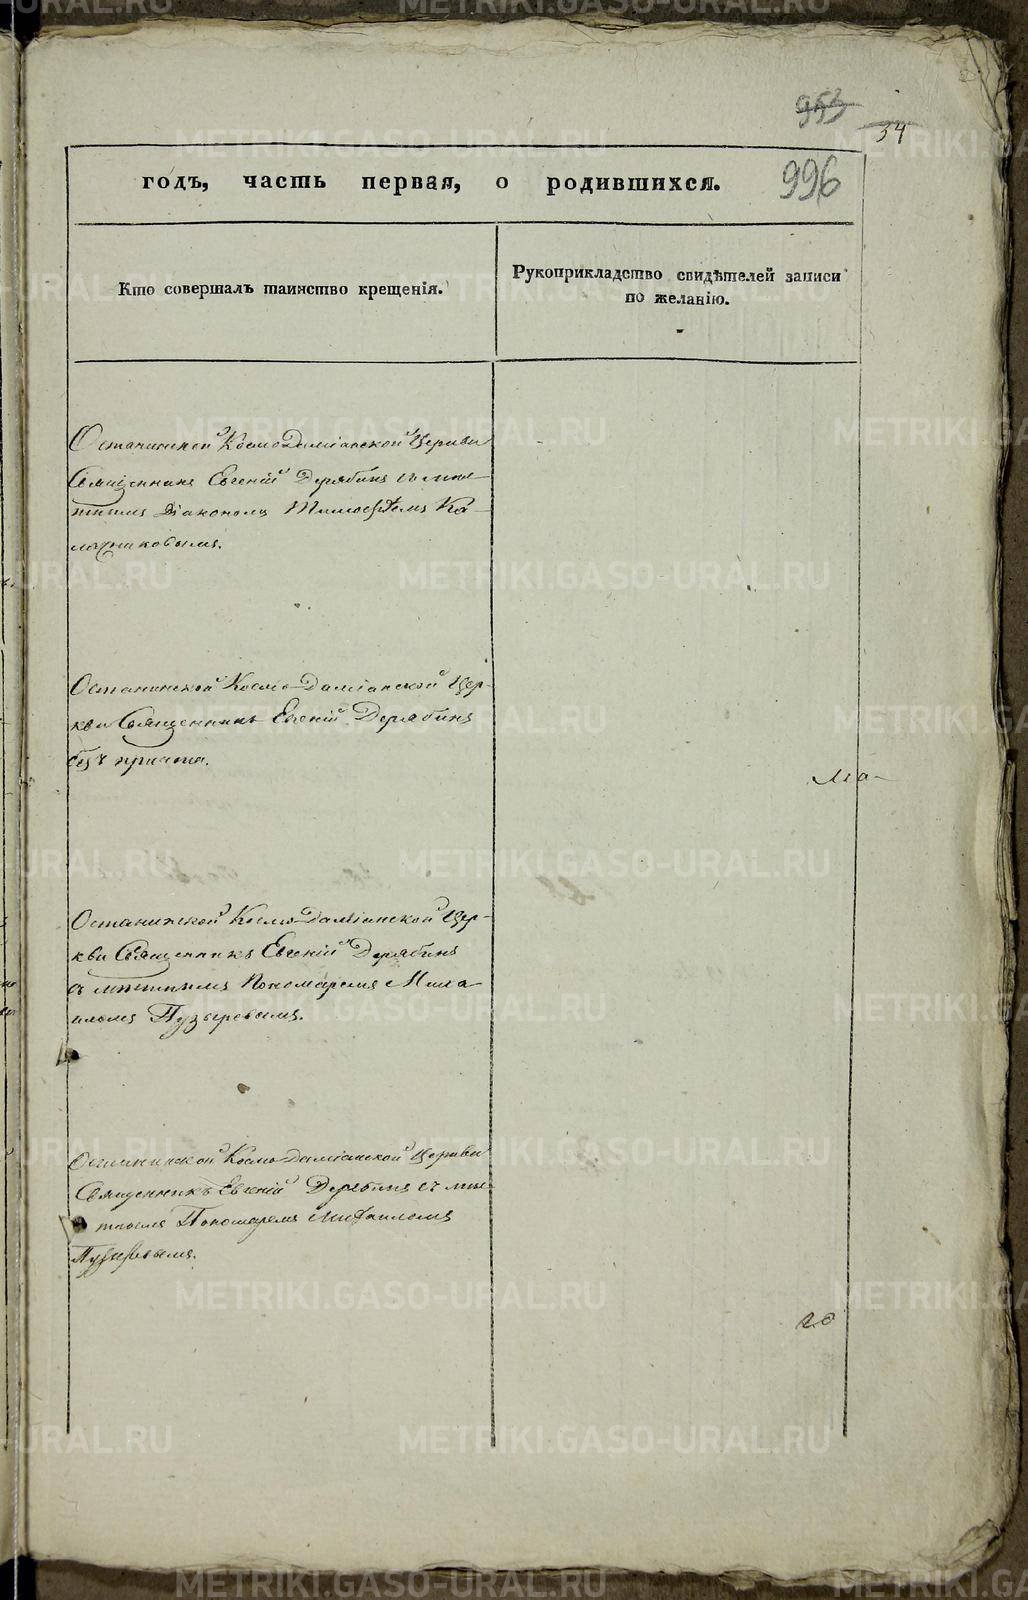 953
34
996
годъ, часть первая, о родившихся.
Кто совершалъ таинство крещенія.
Рукоприкладство свидѣтелей записи
по желанію.
Останинской Космо Даміанской Церкви
Священникъ Евгеній Дерябинъ съ прич-
тнымъ Діакономъ Тимофѣемъ Ка-
лачниковымъ.
Останинской Космо-Даміанской Цер-
кви Священникъ Евгеній Дерябинъ
безъ причта.
Ма-
Останинской Космо-Даміанской Цер-
кви Священникъ Евгеній Дерябинъ
съ Пономаремъ Миха-
иломъ Пузыревымъ.
Останинской Космо Даміанской Церкви
Священникъ Евгеній Дерябинъ съ
Пономаремъ Михаиломъ
Пузыревымъ.
METRIKI.GASO-URAL.RU